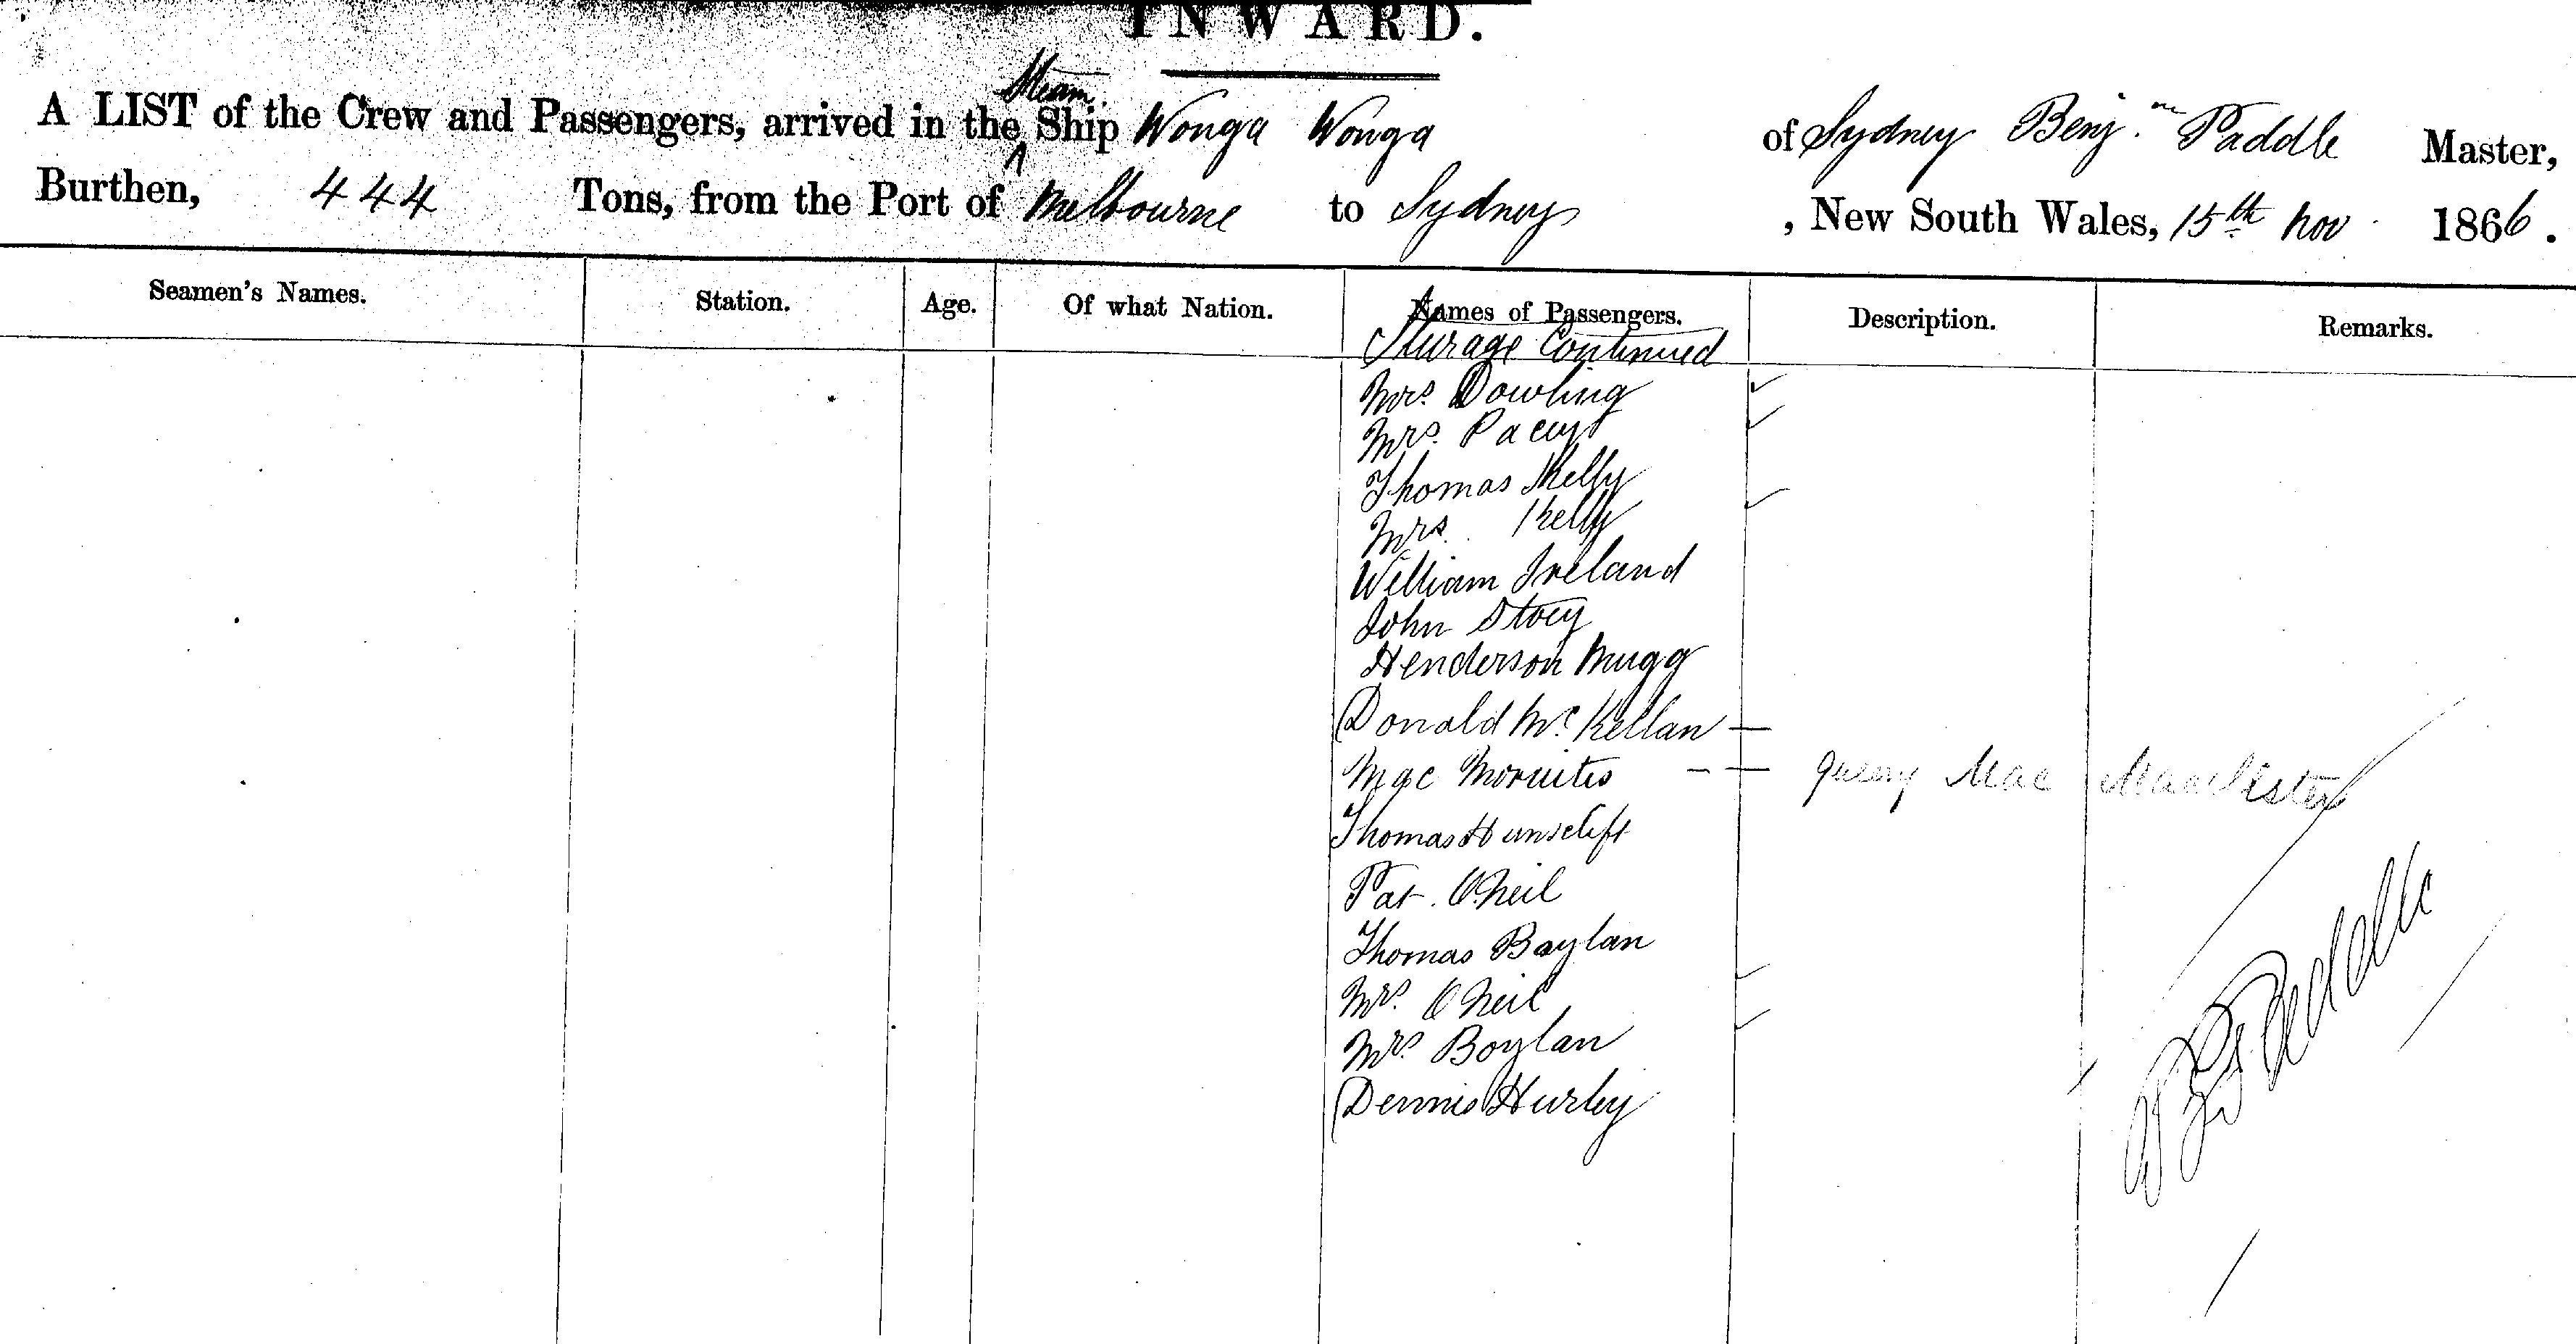 INWARD.
Steam
A LIST of the Crew and Passengers, arrived in the ^ Ship Wonga Wonga of Sydney Benj.n Paddle Master,
Burthen, 444 Tons, from the Port of Melbourne to Sydney , New South Wales, 15th Nov 1866.
Seamen's Names. Station. Age. Of what Nation. Names of Passengers. Description. Remarks.
Sturage Continued
Mrs. Dowling
Mrs. Pacey
Thomas Kelly
Mrs. Kelly
William Ireland
John Stoey
Henderson Mugg
Donald Mc. Kellan —
Mac — — Mac
Thomas
Pat. O'Neil
Thomas Baylan
Mrs. O Neil
Mrs Boylan
Dennis Hurley